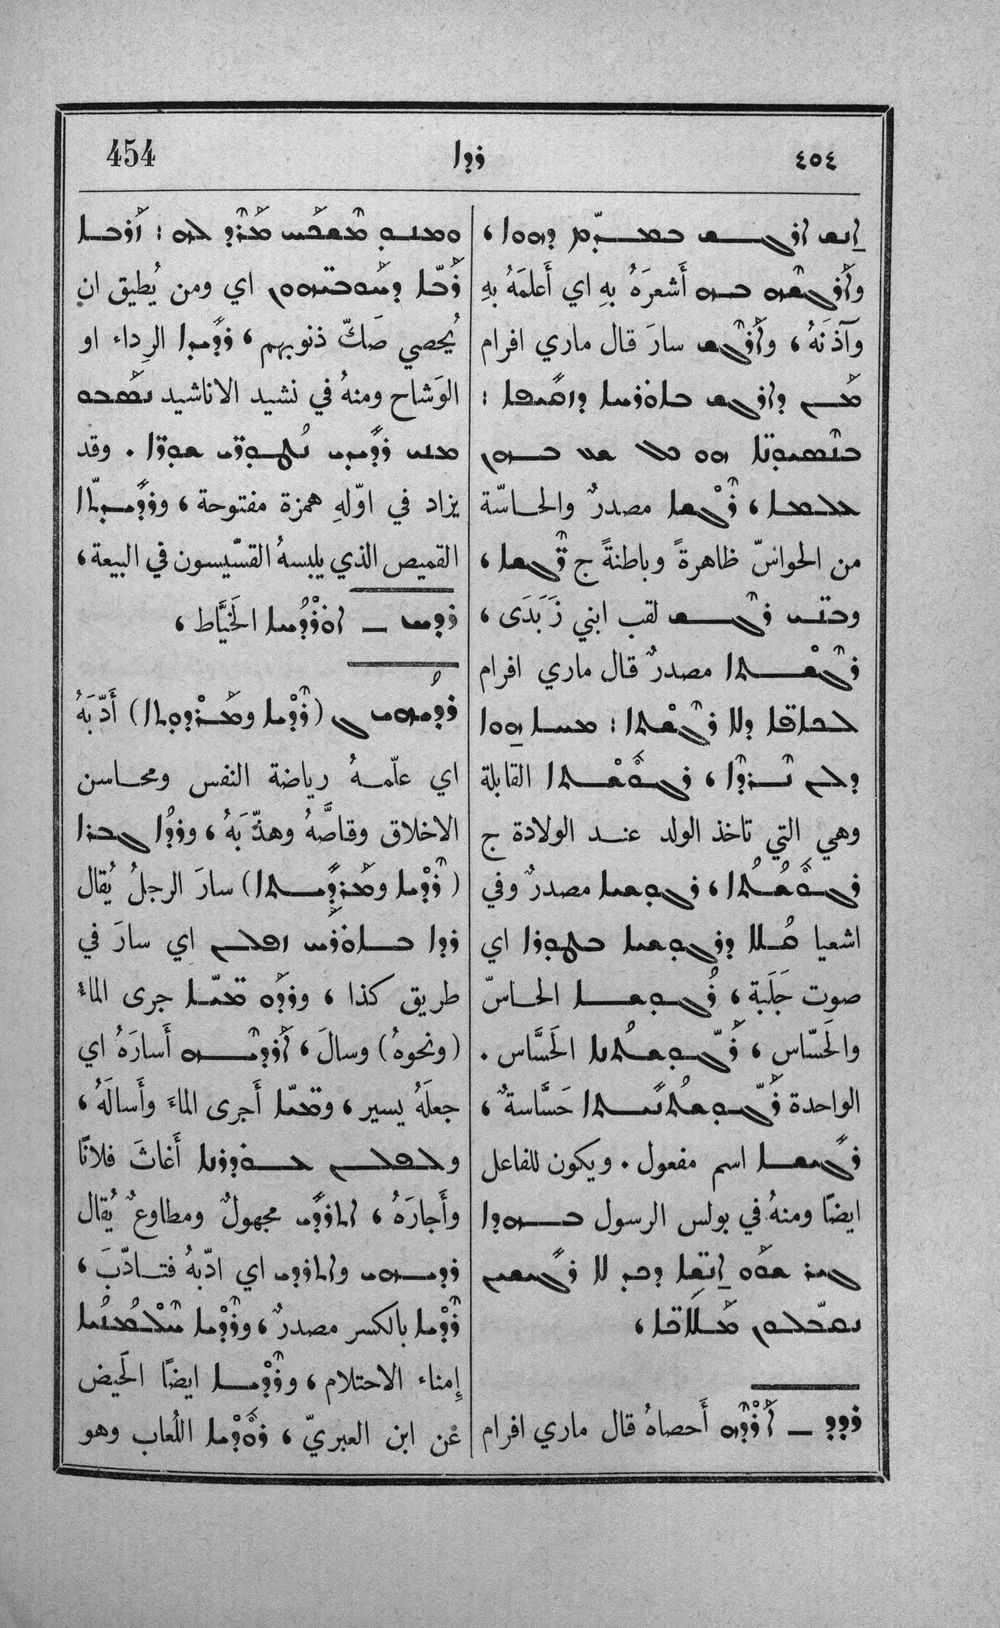 ٤٥٤ ܪܕܐ 454
ܐܢܫ ܐܪܓܫ ܒܡܕܡ ܕܗܘܐ ،
ܘܐܪܓܫܗ ܒܗ أَشعرَهُ بهِ اي أَعلمَهُ بهِ
وآذنَهُ ، ܘܐܪܓܫ سارَ قال ماري افرام
ܡܢ ܕܐܪܓܫ ܒܐܘܪܚܐ
ܒܗܘܢ
ܪܓܫܐ مصدرٌ والحاسّة
من الحواسّ ظاهرةً وباطنةً ج ܪܓܫܐ ،
ܘܒܢܝ ܪܓܫܝ لقب ابني زَبَدَى ،
ܪܓܫܬܐ مصدرٌ قال ماري افرام
ܕܠܐ ܪܓܫܬܐ : ܗܘܐ
ܪܓܘܫܬܐ القابلة
وهي التي تاخذ الولد عند الولادة ج
ܪܓܘܫܝܐ مصدرٌ وفي
اشعيا ܩܠܐ ܕܪܓܘܫܝܐ اي
صوت جَلَبة ، ܪܓܘܫܐ الحاسّ
والحَسّاس ، ܪܓܘܫܬܢܐ الحَسَّاس .
الواحدة ܪܓܘܫܬܢܝܬܐ حَسَّاسةٌ ،
ܪܓܝܫܐ اسم مفعول . ويكون للفاعل
ايضًا ومنهُ في بولس الرسول ܒܗܕܐ
ܓܝܪ ܗܘܘ ܐܢܫܐ ܕܟܕ ܠܐ ܪܓܝܫܝܢ
ܢܩܒܠܘܢ ܡܠܐܟܐ ،
ܪܕܕ — ܐܪܕܗ أَحصاهُ قال ماري افرام
ܘܡܢܘ ܡܫܟܚ : ܐܪܒܠ
ܕܚܘܒܝܗܘܢ اي ومن يُطيق ان
يُحصي صَكّ ذنوبهم ، ܪܕܝܕܐ الرِداء او
الوَشاح ومنهُ في نشيد الاناشيد ܢܣܒܘ
ܪܕܝܕܝ ܢܛܘܪܝ ܫܘܪܐ . وقد
يزاد في اوّلهِ همزة مفتوحة ، ܘܪܕܝܕܬܐ
القميص الذي يلبسهُ القسّيسون في البيعة ،
الخَيَّاط ،
ܪܕܝܗܝ (ܪܕܝܐ ܘܡܪܕܘܬܐ) أَدّبَهُ
اي علّمهُ رياضة النفس ومحاسن
الاخلاق وقاصَّهُ وهذّبَهُ ، ܘܪܕܐ ܓܒܪܐ
(ܪܕܝܐ ܘܡܪܕܝܬܐ) سارَ الرجلُ يُقال
ܪܕܐ ܒܐܘܪܚ ܐܦܠܢ اي سارَ في
طريق كذا ، ܘܪܕܘ ܡܝܐ جرى الماءُ
(ونحوهُ) وسالَ ، ܐܪܕܝܗ أَسارَهُ اي
جعلَهُ يسير ، ܘܡܝܐ أَجرى الماءَ وأَسالَهُ ،
ܘܠܦܠܢ ܥܘܕܪܢܐ أَغاثَ فلانًا
وأَجارَهُ ، ܐܬܪܕܝ مجهولٌ ومطاوعٌ يُقال
ܪܕܝܗܝ ܘܐܬܪܕܝ اي ادّبهُ فتادّبَ ،
ܪܕܝܐ بالكسر مصدرٌ ، ܘܪܕܝܐ
إِمناء الاحتلام ، ܘܪܕܝܐ ايضًا الحَيض
عن ابن العبريّ ، ܪܘܕܝܐ اللُعاب وهو